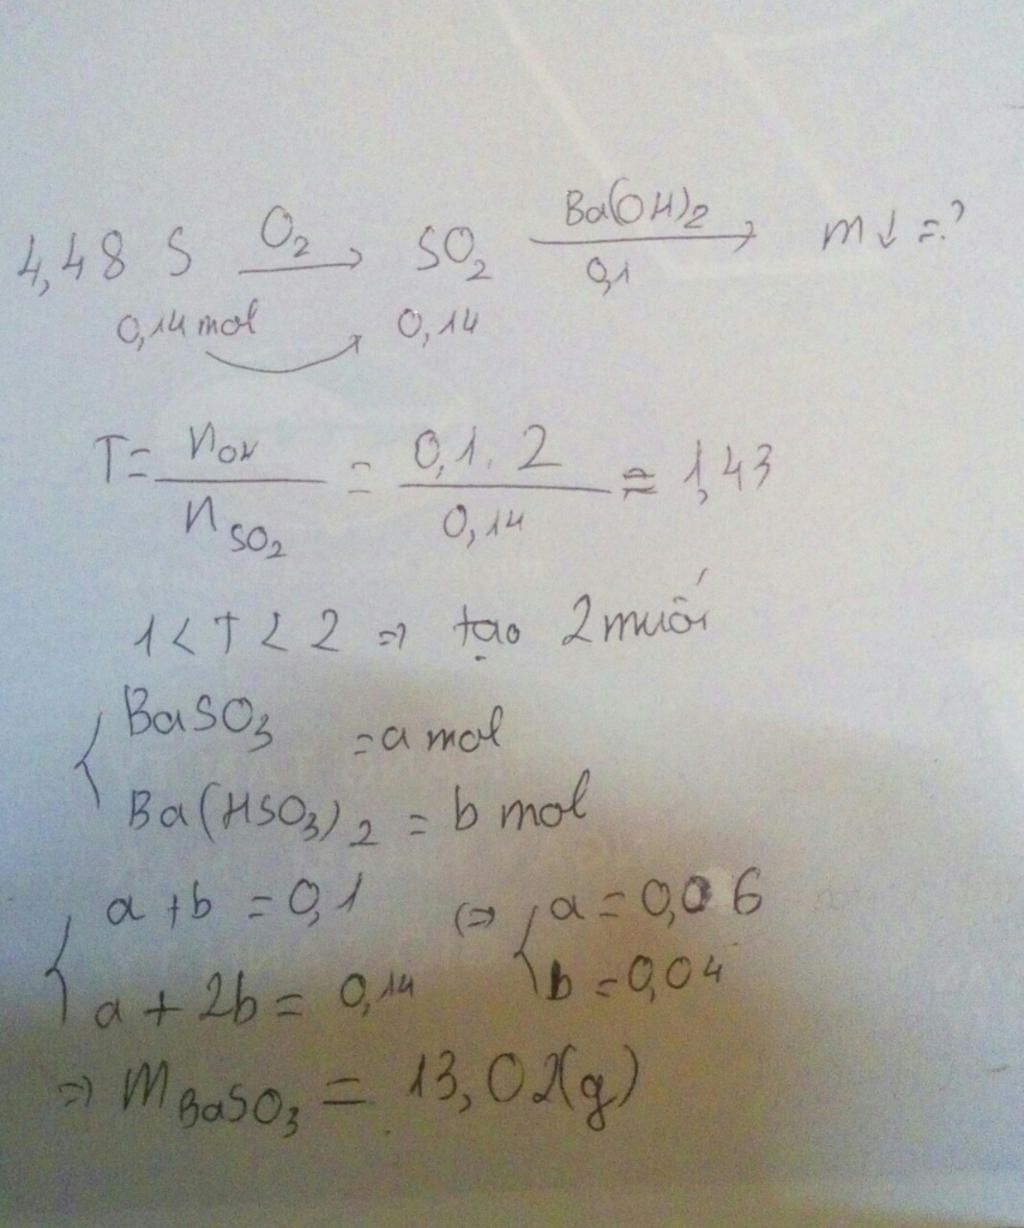 4,48 S O₂ → SO₂ Ba(OH)₂ → m↓ = ?
0,14 mol 0,14 0,1
T = nOH / nSO₂ = 0,1.2 / 0,14 ≈ 1,43
1 < T < 2 => tạo 2 muối
{ BaSO₃ = a mol
Ba(HSO₃)₂ = b mol
{ a + b = 0,1 (=> { a = 0,06
a + 2b = 0,14 b = 0,04
=> mBaSO₃ = 13,02(g)